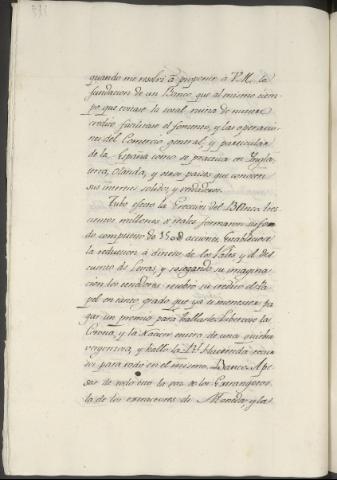 quando me resolví á proponer á V.M. la
fundacion de un Banco, que al mismo tiem-
po que evitase la total ruina de nuestro
credito facilitase el fomento, y las operacio-
nes del Comercio general, y particular
de la España como se practica en Ingla-
terra, Olanda, y otros paises que conocen
sus intereses solidos, y verdaderos.
Tubo efeto la Ereccion del Banco, tres
cientos millones de reales formaron su fon-
do compuesto de 150@ acciones, Establecióse
la reduccion á dinero de los Vales, y el des-
cuento de Letras, y sosegando su imagina-
cion los tenedores recibió su credito el Pa-
pel en tanto grado que ya es menester pa-
gar un premio para hallarle. Libertóse la
Corona, y la Nacion entera de una quiebra
vergonzosa, y halló la Rl. Hacienda recur-
sos para todo en el mismo Banco. A pe-
sar de todo ni la voz de los Extrangeros,
la de los extractores de Moneda, y la